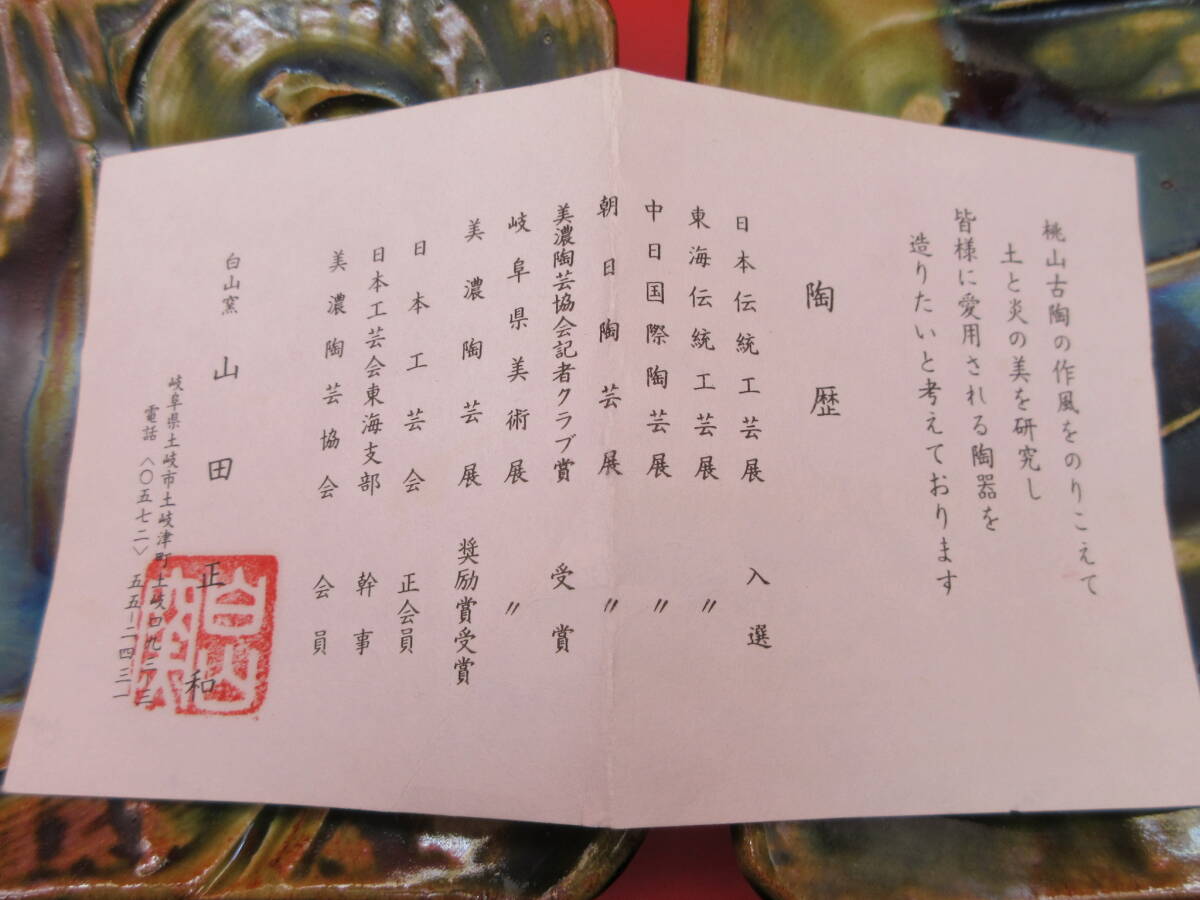 桃山古陶の作風をのりこえて
土と炎の美を研究し
皆様に愛用される陶器を
造りたいと考えております
陶歴
日本伝統工芸展 入選
東海伝統工芸展 〃
中日国際陶芸展 〃
朝日陶芸展 〃
美濃陶芸協会記者クラブ賞 受賞
岐阜県美術展 〃
美濃陶芸展 奨励賞受賞
日本工芸会 正会員
日本工芸会東海支部 幹事
美濃陶芸協会 会員
白山窯 山田正和
岐阜県土岐市土岐津町土岐口九二三
電話〈〇五七二〉五五-二四三一
白山